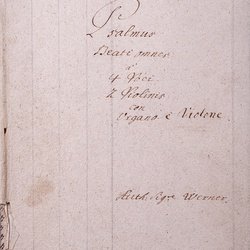 Psalmus
Beati omnes
à
4 Voci
2 Violinis
con
Organo è Violone
Auth. Sigre Werner.